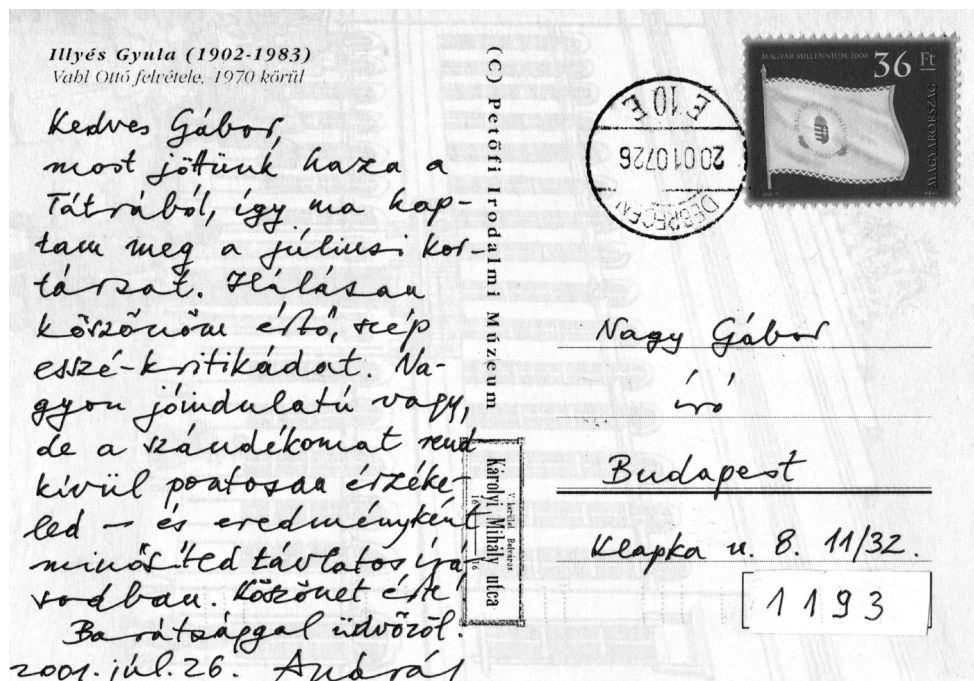 Illyés Gyula (1902-1983)
Vahl Ottó felvétele, 1970 körül
Kedves Gábor,
most jöttünk haza a
Tátrából, így ma kap-
tam meg a júliusi Kor-
társat. Hálásan
köszönöm értő, szép
esszé-kritikádat. Na-
gyon jóindulatú vagy,
de a szándékomat rend
kívül pontosan érzéke-
led — és eredményként
minősíted távlatos írá-
sodban. Köszönet érte!
Barátsággal üdvözöl:
2001. júl. 26. András
(C) Petőfi Irodalmi Múzeum
V. kerület Belváros
Károlyi Mihály utca
16
DEBRECEN
20010726
E 10 E
MAGYAR MILLENNIUM 2000
36 Ft
MAGYARORSZÁG
Nagy Gábor
író
Budapest
Klapka u. 8. 11/32.
1193